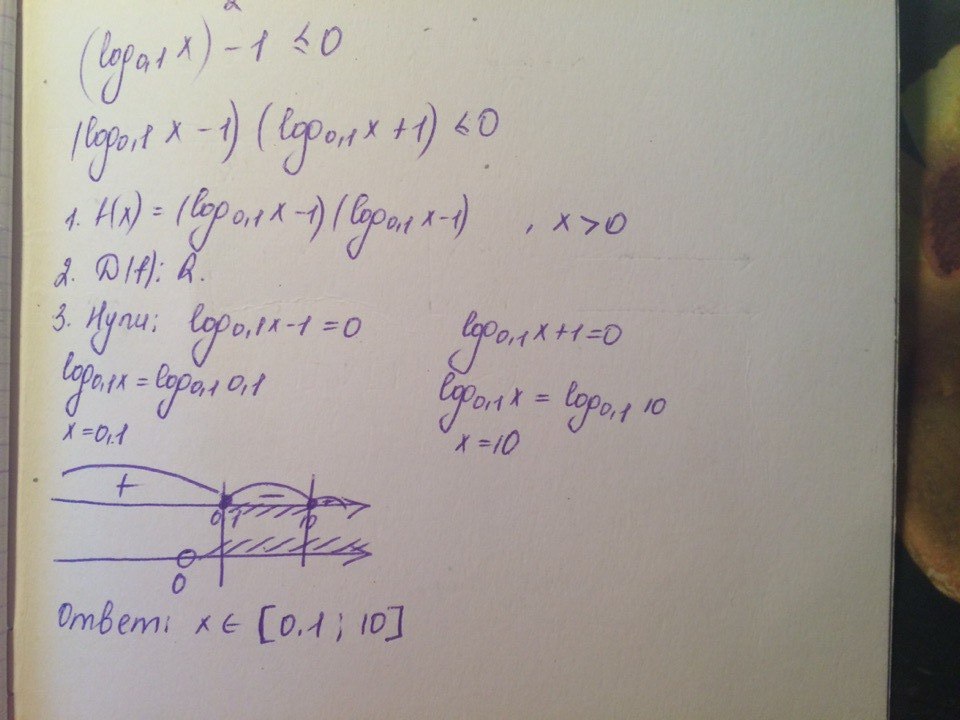 (log₀,₁ x)² - 1 ≤ 0
(log₀,₁ x - 1) (log₀,₁ x + 1) ≤ 0
1. f(x) = (log₀,₁ x - 1) (log₀,₁ x - 1) , x > 0
2. D(f): R.
3. Нули: log₀,₁ x - 1 = 0 log₀,₁ x + 1 = 0
log₀,₁ x = log₀,₁ 0,1 log₀,₁ x = log₀,₁ 10
x = 0,1 x = 10
+ − +
0,1 10
0
Ответ: x ∈ [0,1 ; 10]